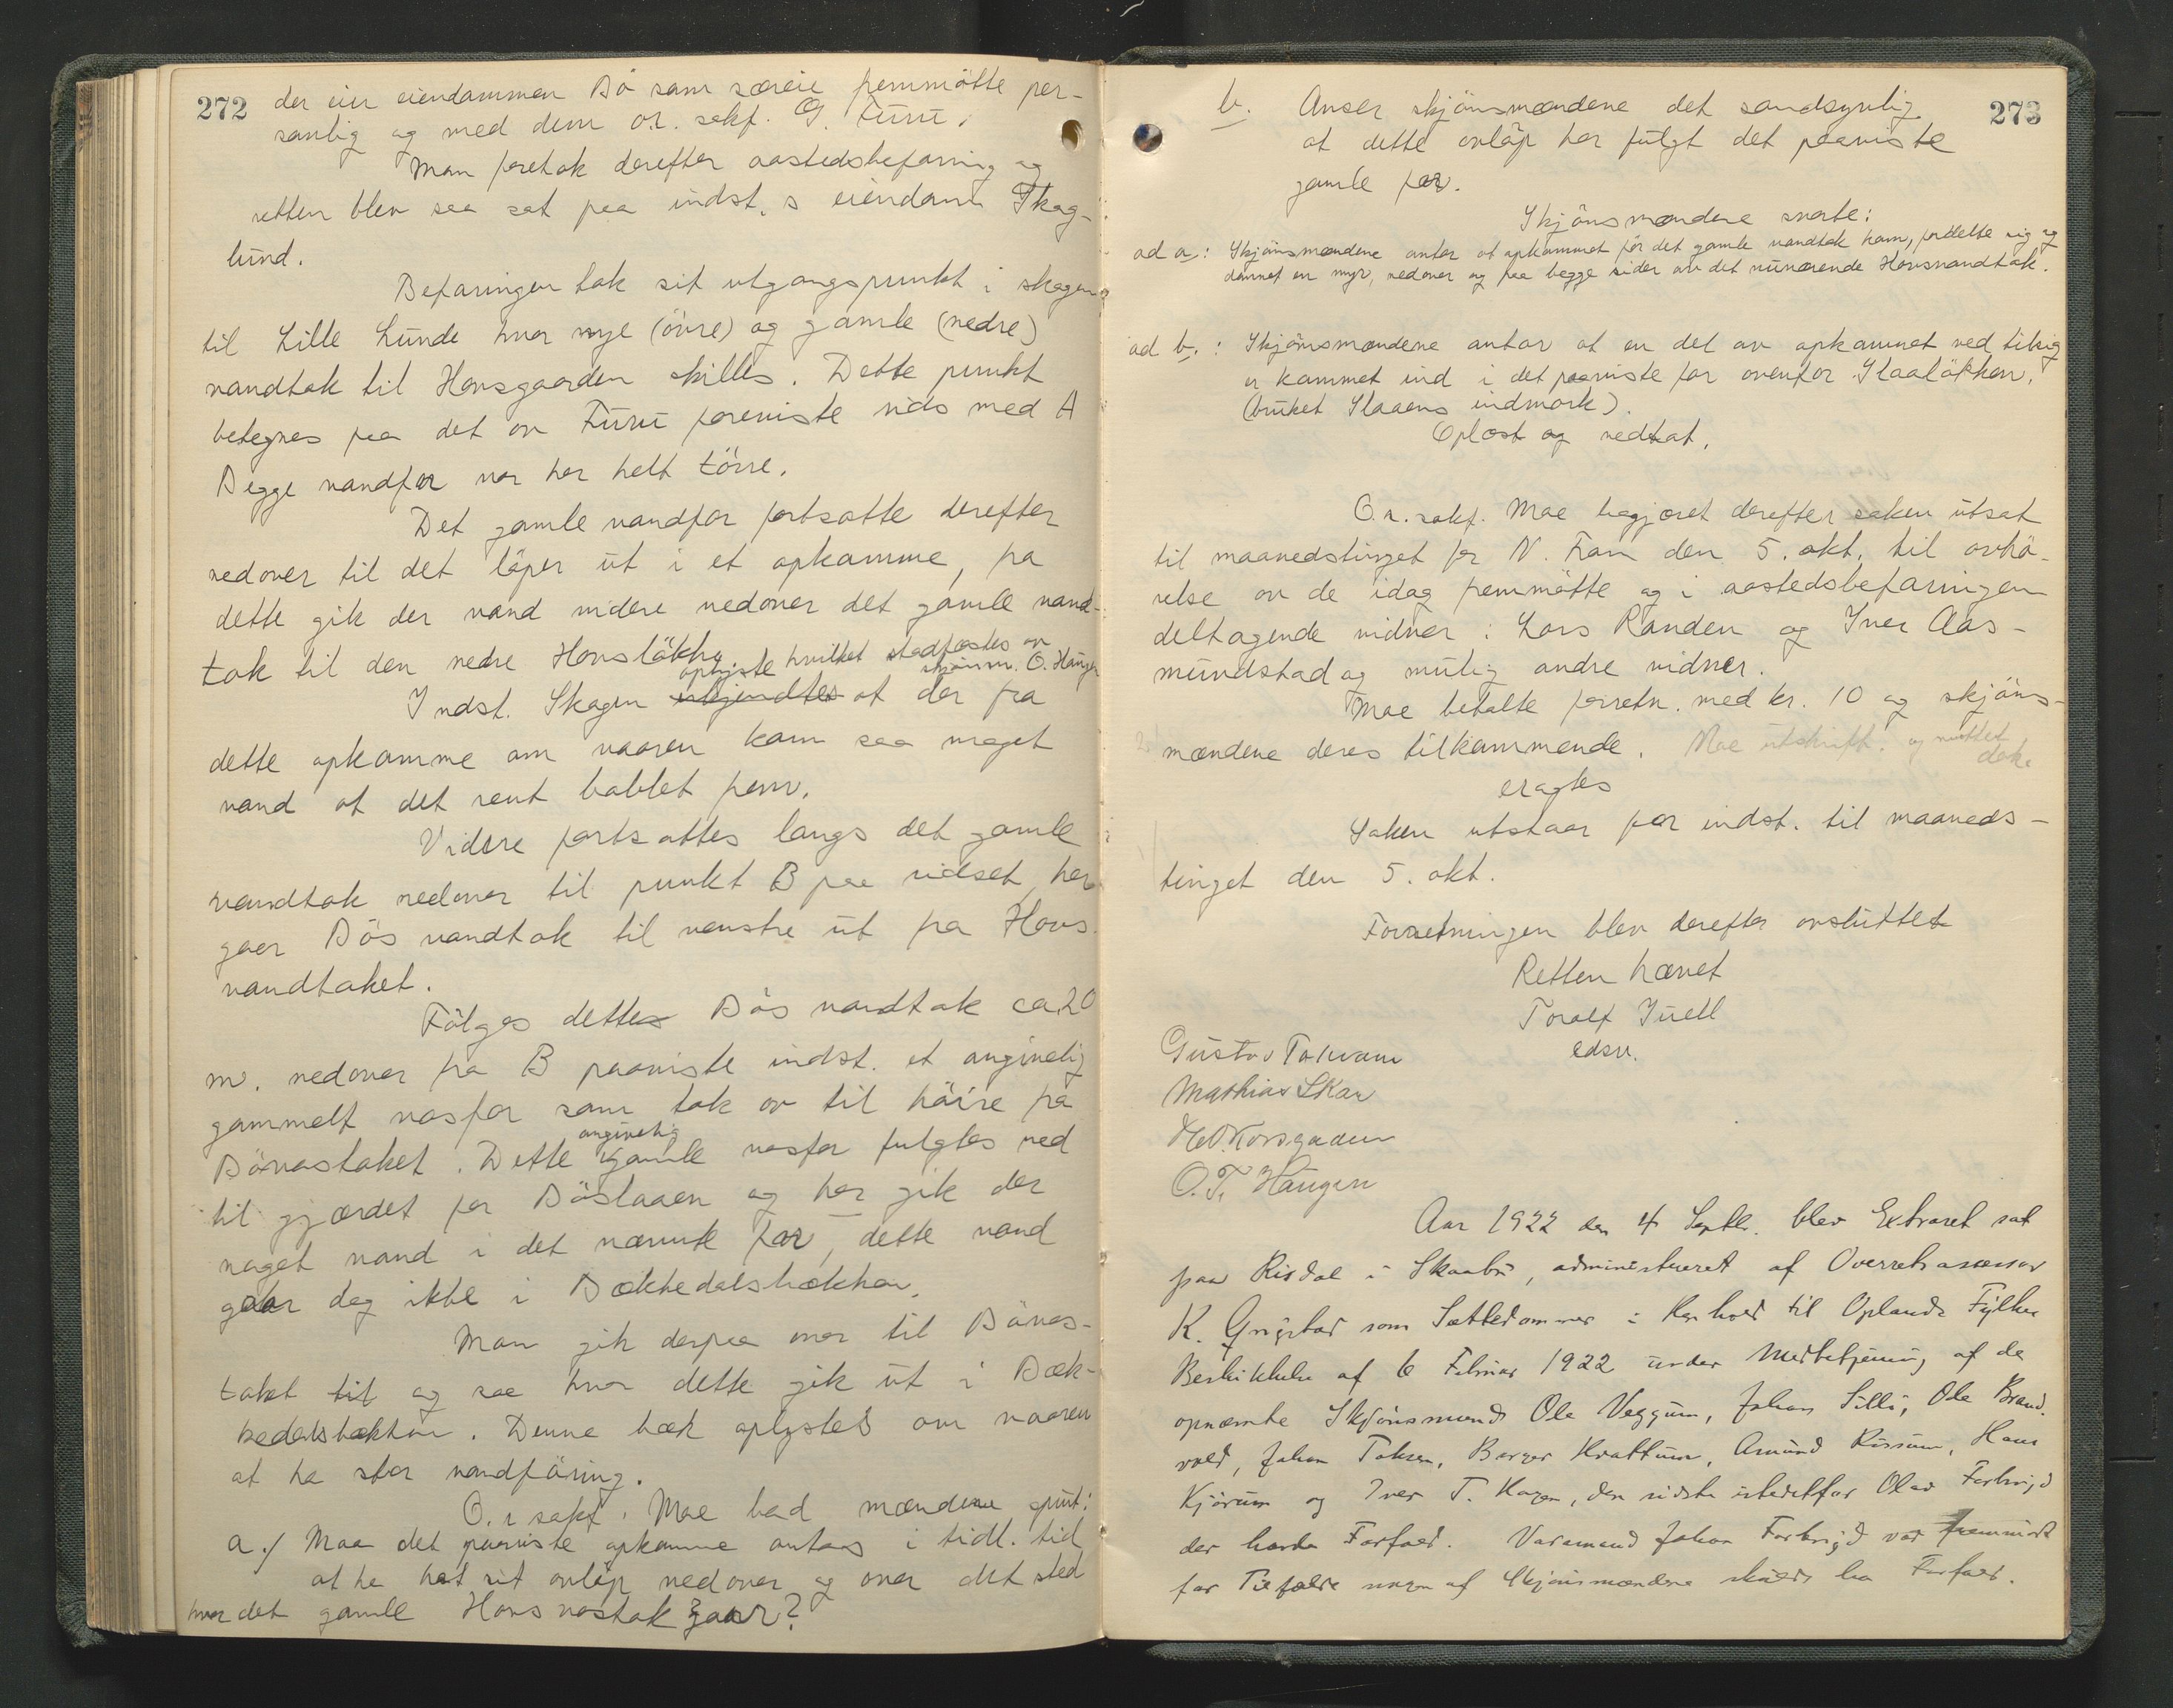 272
der eier eiendommen Bö som særeie fremmötte per-
sonlig og med dem o.r. sakf. G. Furu.
Man foretok derefter aastedsbefaring og
retten blev saa sat paa indst.s eiendom Skog-
lund.
Befaringen tok sit utgangspunkt i skogen
til Lille Lunde hvor nye (övre) og gamle (nedre)
vandtak til Hovsgaarden skilles. Dette punkt
betegnes paa det av Furu foreviste rids med A
Begge vandfar var her helt törre.
Det gamle vandfar fortsatte derefter
nedover til det löper ut i et opkomme, fra
dette gik der vand videre nedover det gamle vand-
tak til den nedre Hovslökke hvilket stadfæstes av
skjönsm. O. Haugen
Indst. Skogen oplyste at der fra
dette opkomme om vaaren kom saa meget
vand at det rent boblet frem.
Videre fortsattes langs det gamle
vandtak nedover til punkt B paa ridset, her
gaar Bös vandtak til venstre ut fra Hovs
vandtaket.
Fölges dette Bös vandtak ca. 20
m. nedover fra B paaviste indst. et angivelig
gammelt vasfar som tok av til höire fra
Bövastaket. Dette angivelig gamle vasfar fulgtes ned
til gjærdet for Böslaaen og her gik der
noget vand i det nævnte far, dette vand
gaar dog ikke i Bækkedalsbækken.
Man gik derpaa over til Bövas-
taket til og saa hvor dette gik ut i Bæk-
kedalsbækken. Denne bæk oplystes om vaaren
at ha stor vandföring.
O.r sakf. Moe bad mændene
a./ Maa det paaviste opkomme antas i tidl. tid
at ha hat sit avlöp nedover og over det sted
hvor det gamle Hovs vastak gaar?
273
b. Anser skjönsmændene det sandsynlig
at dette avlöp har fulgt det paaviste
gamle far.
Skjönsmændene svarte:
ad a: Skjönsmændene antar at opkommet för det gamle vandtak kom, fordelte sig og
dannet en myr, nedover og paa begge sider av det nuværende Hovsvandtak.
ad b.: Skjönsmændene antar at en del av opkommet ved tilsig
er kommet ind i det paaviste far ovenfor Slaalökken.
(bruket Slaaens indmark).
Oplæst og vedtat.
O.r. sakf. Moe begjæret derefter saken utsat
til maanedstinget for N. Fron den 5. okt. til avhö-
relse av de idag fremmötte og i aastedsbefaringen
deltagende vidner: Lars Randen og Iver Aas-
mundstad og mulig andre vidner.
Moe betalte forretn. med kr. 10 og skjöns-
mændene deres tilkommende. Moe utskrift. og
dok.
eragtes
Saken utstaar for indst. til maaneds-
tinget den 5. okt.
Forretningen blev derefter avsluttet
Retten hævet
Toralf Juell
edsv.
Gustav Tokvam
Mathias Skar
Korsgaden
O. T. Haugen
Aar 1922 den 4 Septbr. blev Extraret sat
paa Risdal i Skaabu, administreret af Overretsassessor
K. Grigstad som Sættedommer i Henhold til Oplands Fylkes
Beskikkelse af 6 Februar 1922 under Medbetjening af de
opnævnte Skjönsmænd Ole Veggum, Johan Silli, Ole Brand-
vold, Johan Toksen, Berger Kvattum, Amund Rusum, Hans
Kjörum og Iver T. Hagen, den sidste istedetfor Olav Forbrigd
der havde Forfald. Varamand Johan Forbrigd var fremmödt
for Tilfælde nogen af Skjönsmændene skulde ha Forfald.